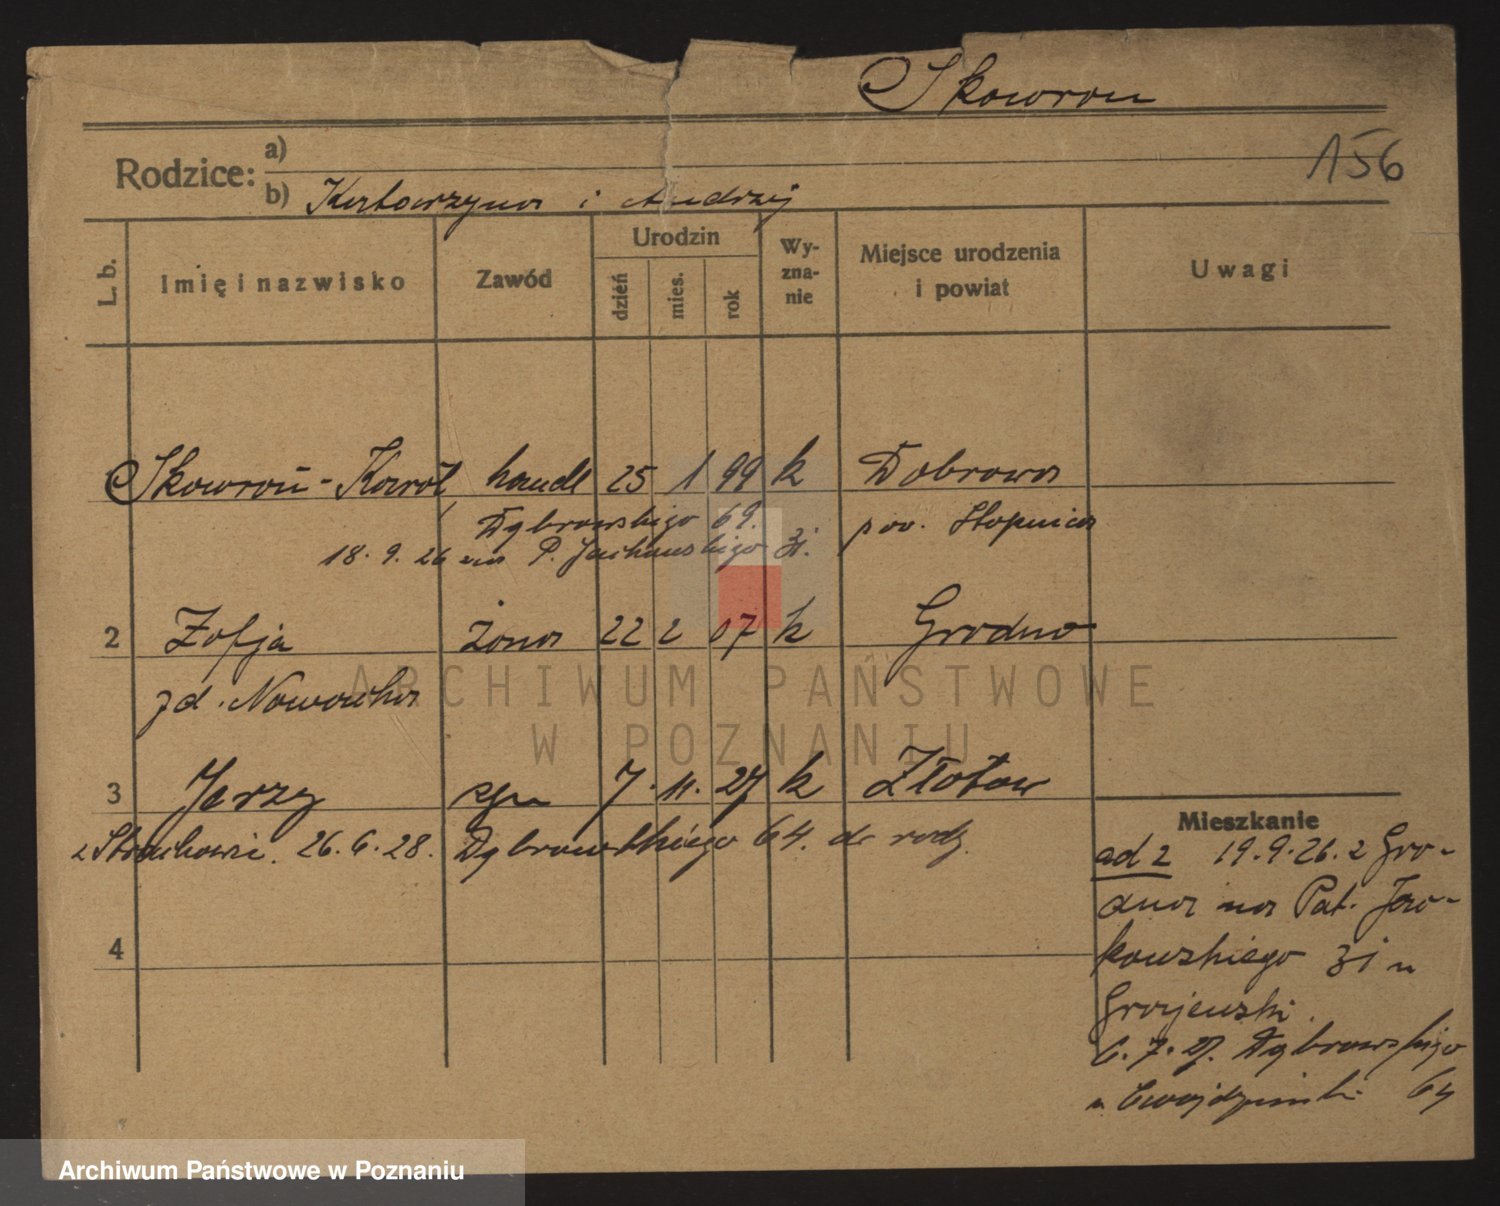 Skowron
156
Rodzice: a)
b) Katarzyna i Andrzej
L. b. Imię i nazwisko Zawód Urodzin dzień mies. rok Wy-zna-nie Miejsce urodzenia i powiat Uwagi
Skowroń - Karól handl 25 1 99 k Dobrowa
Dąbrowskiego 69. pow. Stopnica
18. 9. 26 na P. Jackowskiego 31.
2 Zofja żona 22 2 07 k Grodno
zd. Nowowka
ARCHIWUM PAŃSTWOWE
W POZNANIU
3 Jerzy syn 7. 11. 27 k Złotow
26. 6. 28. Dąbrowskiego 64. do rodz.
4
Mieszkanie
ad 2 19. 9. 26. z Gro-
dna na Pat. Jac-
kowskiego 31 u
Grojewski.
6. 7. 27. Dąbrowskiego
u 64
Archiwum Państwowe w Poznaniu